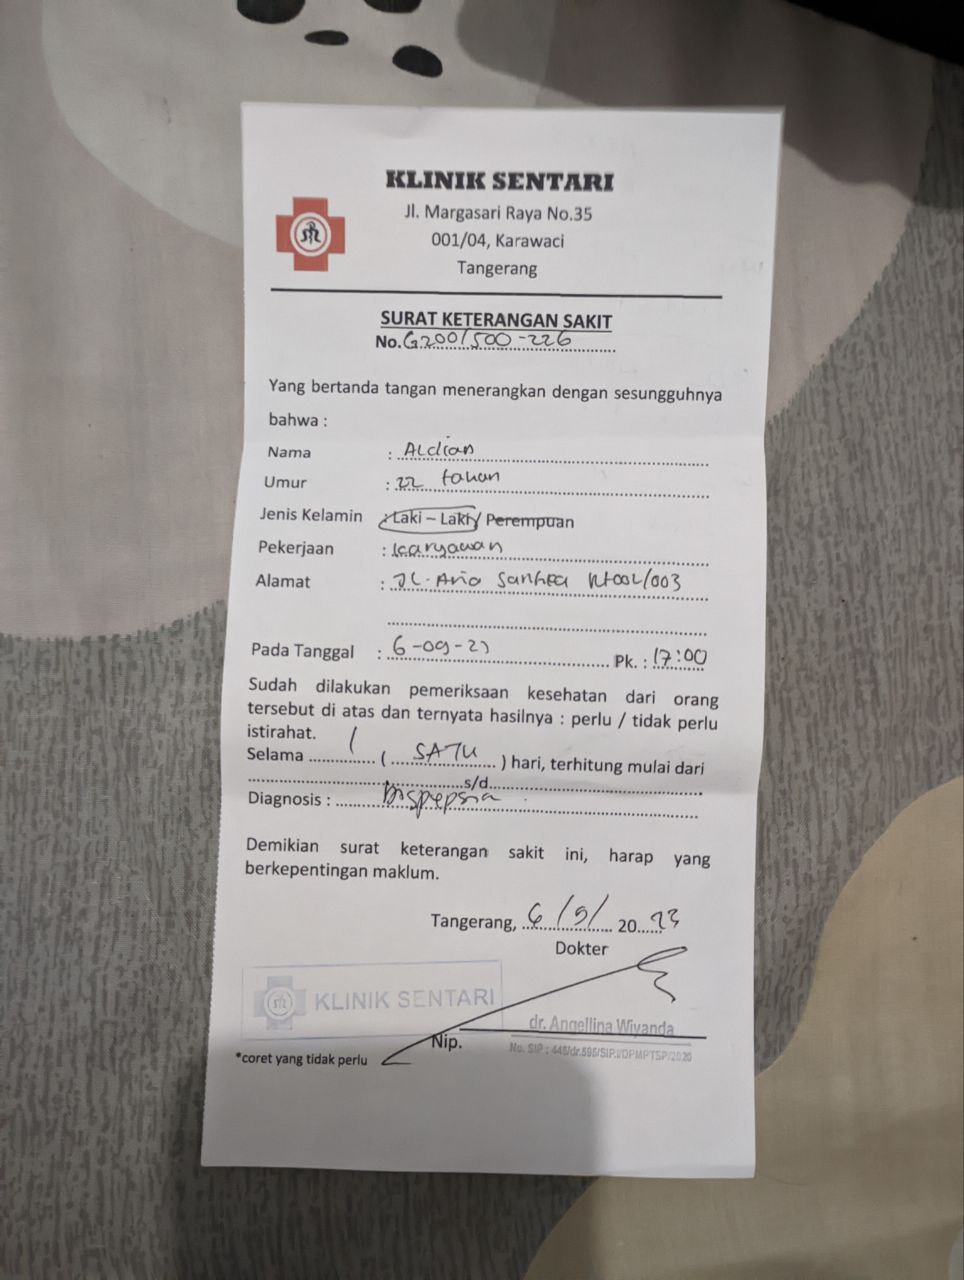 KLINIK SENTARI
Jl. Margasari Raya No.35
001/04, Karawaci
Tangerang
SURAT KETERANGAN SAKIT
No. G200/500-226
Yang bertanda tangan menerangkan dengan sesungguhnya
bahwa :
Nama : Aldian
Umur : 22 tahun
Jenis Kelamin : Laki – Laki / Perempuan
Pekerjaan : karyawan
Alamat : JL. Aria
Pada Tanggal : 6-09-23 Pk. : 17:00
Sudah dilakukan pemeriksaan kesehatan dari orang
tersebut di atas dan ternyata hasilnya : perlu / tidak perlu
istirahat.
Selama 1 ( SATU ) hari, terhitung mulai dari
s/d
Diagnosis : Dispepsia
Demikian surat keterangan sakit ini, harap yang
berkepentingan maklum.
Tangerang, 6/9/ 2023
Dokter
KLINIK SENTARI
dr. Angellina Wiyanda
Nip.
No. SIP : 446/dr.595/SIP.I/DPMPTSP/2020
*coret yang tidak perlu